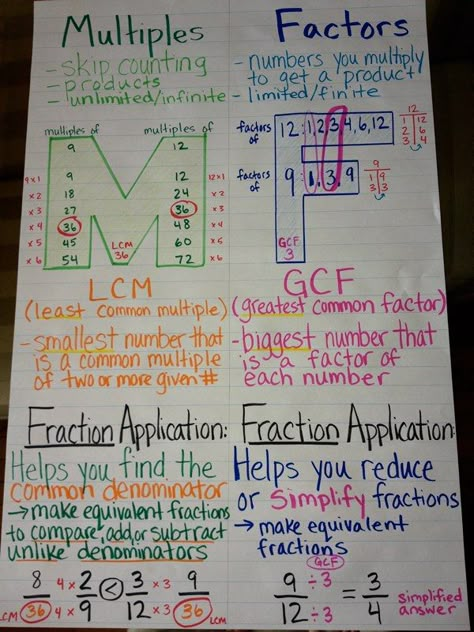 Multiples
- skip counting
- products
- unlimited/infinite
multiples of
9
multiples of
12
9x1 9
x2 18
x3 27
x4 36
x5 45
x6 54
LCM
36
12 12x1
24 x2
36 x3
48 x4
60 x5
72 x6
LCM
(least common multiple)
- smallest number that
is a common multiple
of two or more given #
Fraction Application:
Helps you find the
common denominator
→ make equivalent fractions
to compare, add, or subtract
unlike denominators
8 4 x 2 < 3 x 3 9
LCM 36 4 x 9 12 x 3 36 LCM
Factors
- numbers you multiply
to get a product
- limited/finite
factors
of
12: 1, 2, 3, 4, 6, 12
12
1 12
2 6
3 4
factors
of
9: 1, 3, 9
9
1 9
3 3
GCF
3
GCF
(greatest common factor)
- biggest number that
is a factor of
each number
Fraction Application:
Helps you reduce
or simplify fractions
→ make equivalent
fractions
GCF
9 ÷3 = 3
12 ÷3 4
simplified
answer